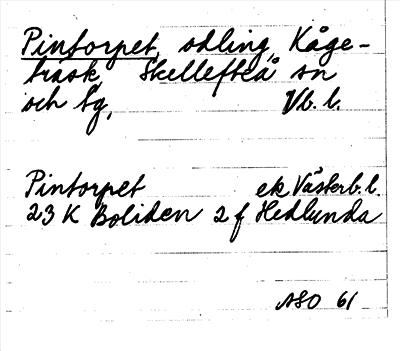 Pintorpet, odling, Kåge-
träsk, Skellefteå sn
och tg, Vb. l.
Pintorpet ek Västerb. l.
23 K Boliden 2 f Hedlunda
ASO 61